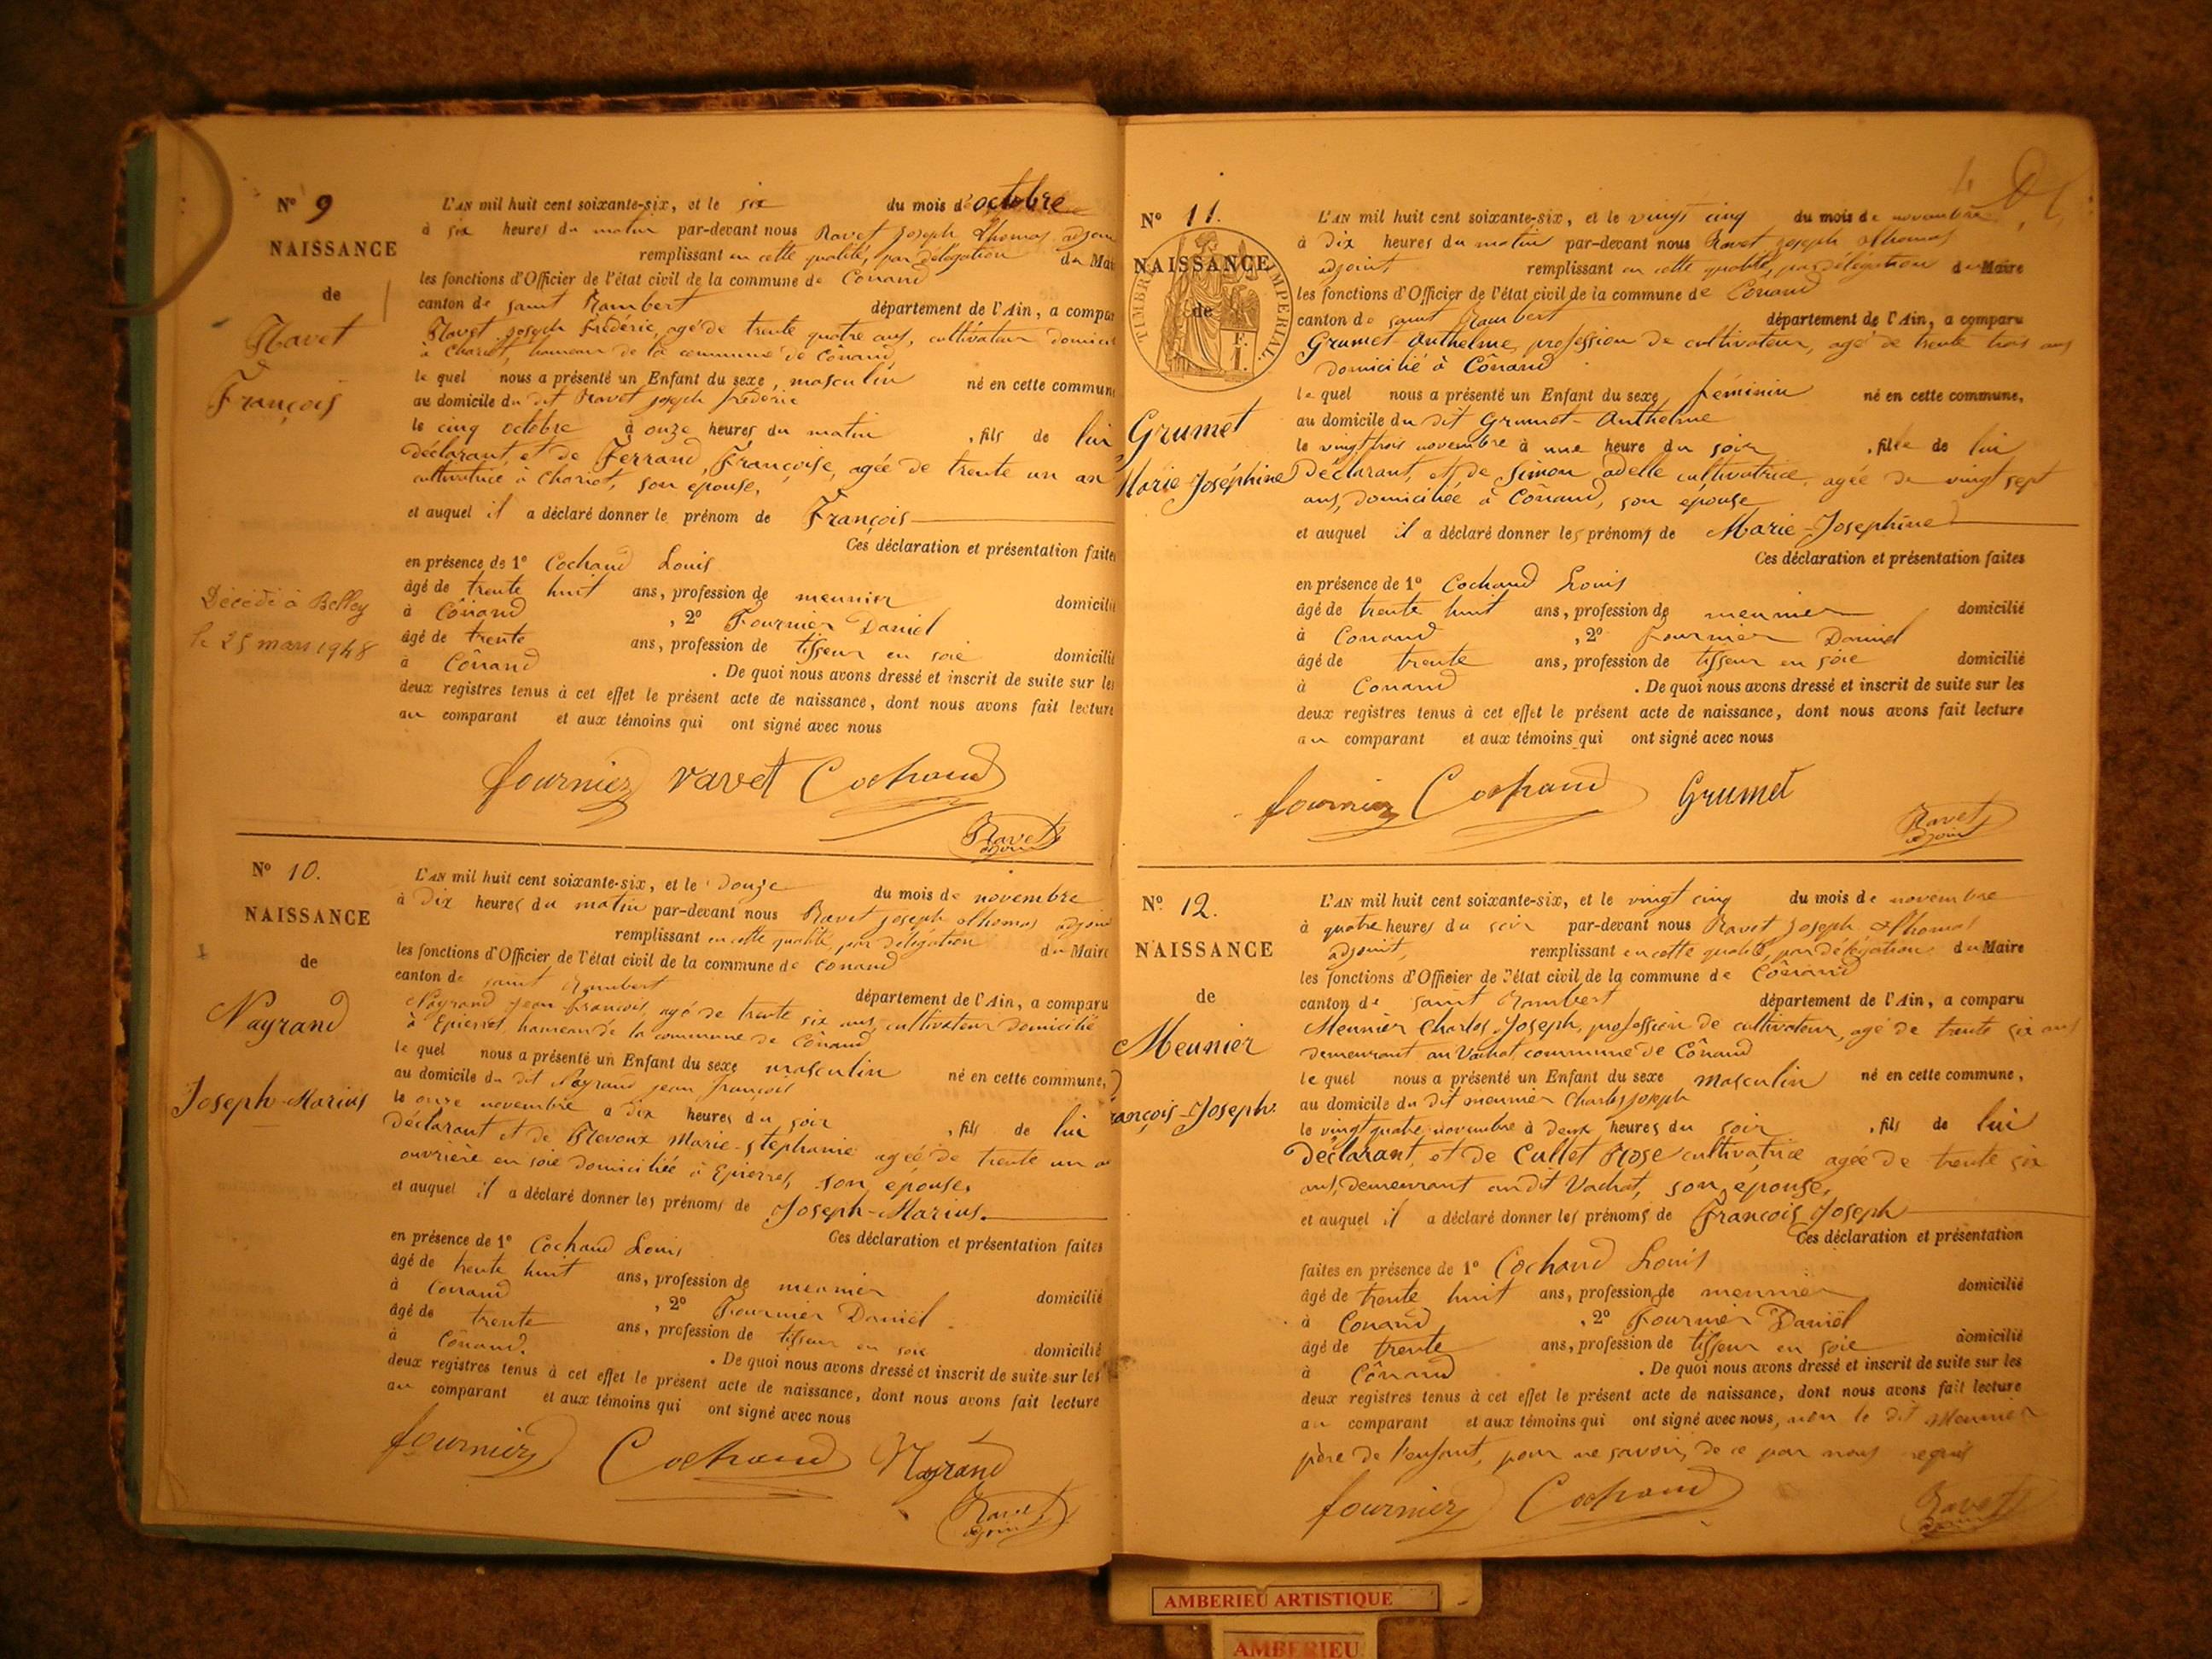 Nº 9
NAISSANCE
de
Ravet
François
Décédé à Belley
le 25 mars 1948
L'AN mil huit cent soixante-six, et le six du mois d'octobre
à six heures du matin par-devant nous Ravet Joseph Thomas adjoin
remplissant en cette qualité, par délégation du Mai
les fonctions d'Officier de l'état civil de la commune de Conand
canton de saint Rambert département de l'Ain, a compar
Ravet Joseph frédéric, agé de trente quatre ans, cultivateur domicil
à Chariot, hameau de la commune de Cônand
le quel nous a présenté un Enfant du sexe, masculin né en cette commune
au domicile du dit Ravet joseph frédéric
le cinq octobre à onze heures du matin , fils de lui
déclarant et de Ferrand, Françoise, agée de trente un an
cultivatrice à Chariot, son epouse,
et auquel il a déclaré donner le prénom de François
Ces déclaration et présentation faites
en présence de 1º Cochand Louis
âgé de trente huit ans, profession de meunier domicilié
à Cônand , 2º Fournier Daniel
âgé de trente ans, profession de tisseur en soie domicilié
à Cônand . De quoi nous avons dressé et inscrit de suite sur les
deux registres tenus à cet effet le présent acte de naissance, dont nous avons fait lecture
au comparant et aux témoins qui ont signé avec nous
fournier ravet Cochand
Ravet
adjoint
Nº 10.
NAISSANCE
de
Nayrand
Joseph-Marius
L'AN mil huit cent soixante-six, et le douze du mois de novembre
à dix heures du matin par-devant nous Ravet joseph thomas adjoin
remplissant en cette qualité, par délégation du Maire
les fonctions d'Officier de l'état civil de la commune de Conand
canton de saint Rambert département de l'Ain, a comparu
Nayrand Jean françois, agé de trente six ans, cultivateur domicilié
à Epierres, hameau de la commune de Cônand
le quel nous a présenté un Enfant du sexe masculin né en cette commune,
au domicile du dit Nayrand jean françois
le onze novembre à dix heures du soir , fils de lui
déclarant et de Prevoux Marie-stephanie agée de trente un
ouvrière en soie domiciliée à Epierres, son epouse,
et auquel il a déclaré donner les prénoms de Joseph-Marius.
Ces déclaration et présentation faites
en présence de 1º Cochand Louis
âgé de trente huit ans, profession de meunier domicilié
à Conand , 2º Fournier Daniel
âgé de trente ans, profession de tisseur en soie domicilié
à Cônand. . De quoi nous avons dressé et inscrit de suite sur les
deux registres tenus à cet effet le présent acte de naissance, dont nous avons fait lecture
au comparant et aux témoins qui ont signé avec nous
fournier Cochand Nayrand
Ravet
adjoint
Nº 11.
TIMBRE IMPERIAL.
F.
1.
NAISSANCE
de
Grumet
Marie-Joséphine
L'AN mil huit cent soixante-six, et le vingt cinq du mois de novembre
à dix heures du matin par-devant nous Ravet joseph thomas
adjoint remplissant en cette qualité, par délégation du Maire
les fonctions d'Officier de l'état civil de la commune de Conand
canton de saint Rambert département de l'Ain, a comparu
Grumet Anthelme, profession de cultivateur, agé de trente trois ans
domicilié à Cônand
le quel nous a présenté un Enfant du sexe féminin né en cette commune,
au domicile du dit Grumet-Anthelme
le vingt trois novembre à une heure du soir , fille de lui
déclarant, et de Simon adelle cultivatrice, agée de vingt sept
ans, domiciliée à Cônand, son epouse
et auquel il a déclaré donner les prénoms de Marie-Josephine
Ces déclaration et présentation faites
en présence de 1º Cochand Louis
âgé de trente huit ans, profession de meunier domicilié
à Conand , 2º Fournier Daniel
âgé de trente ans, profession de tisseur en soie domicilié
à Conand . De quoi nous avons dressé et inscrit de suite sur les
deux registres tenus à cet effet le présent acte de naissance, dont nous avons fait lecture
au comparant et aux témoins qui ont signé avec nous
fournier Cochand Grumet
Ravet
adjoint
Nº 12.
NAISSANCE
de
Meunier
François-Joseph
L'AN mil huit cent soixante-six, et le vingt cinq du mois de novembre
à quatre heures du soir par-devant nous Ravet Joseph thomas
adjoint, remplissant en cette qualité, par délégation du Maire
les fonctions d'Officier de l'état civil de la commune de Cônand
canton de saint Rambert département de l'Ain, a comparu
Meunier Charles Joseph, profession de cultivateur, agé de trente six ans
demeurant au Vachat, commune de Cônand
le quel nous a présenté un Enfant du sexe masculin né en cette commune,
au domicile du dit meunier Charles joseph
le vingt quatre novembre à deux heures du soir , fils de lui
déclarant, et de Cullet Rose cultivatrice agée de trente six
ans, demeurant au dit Vachat, son epouse,
et auquel il a déclaré donner les prénoms de François Joseph
Ces déclaration et présentation
faites en présence de 1º Cochand Louis
âgé de trente huit ans, profession de meunier domicilié
à Conand , 2º Fournier Daniël
âgé de trente ans, profession de tisseur en soie domicilié
à Cônand . De quoi nous avons dressé et inscrit de suite sur les
deux registres tenus à cet effet le présent acte de naissance, dont nous avons fait lecture
au comparant et aux témoins qui ont signé avec nous, non le dit Meunier
père de l'enfant, pour ne savoir, de ce par nous requis
fournier Cochand
Ravet
adjoint
AMBERIEU ARTISTIQUE
AMBERIEU